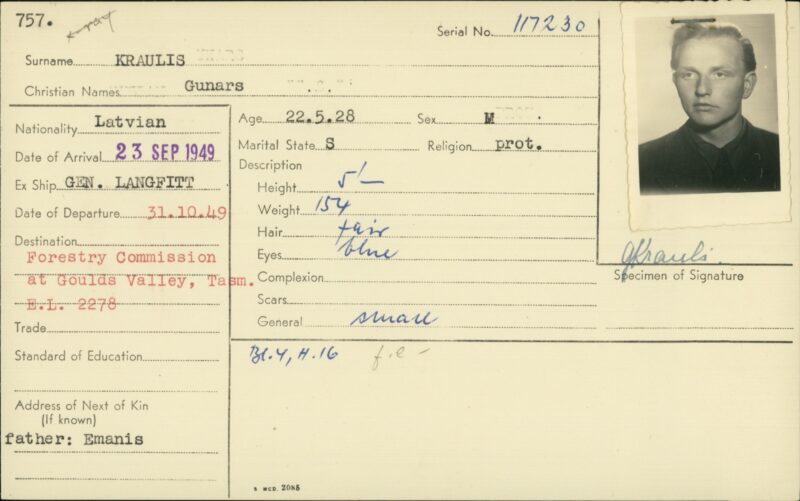 757.
x-ray
Serial No. 117230
Surname KRAULIS
Christian Names Gunars
Nationality Latvian
Date of Arrival 23 SEP 1949
Ex Ship GEN. LANGFITT
Date of Departure 31.10.49
Destination
Forestry Commission
at Goulds Valley, Tasm.
E.L. 2278
Trade
Standard of Education
Address of Next of Kin
(If known)
father: Emanis
Age 22.5.28 Sex M
Marital State S Religion prot.
Description
Height 5/-
Weight 154
Hair fair
Eyes blue
Complexion
Scars
General
Bl.4, H.16
GKraulis.
Specimen of Signature
MCD. 2085